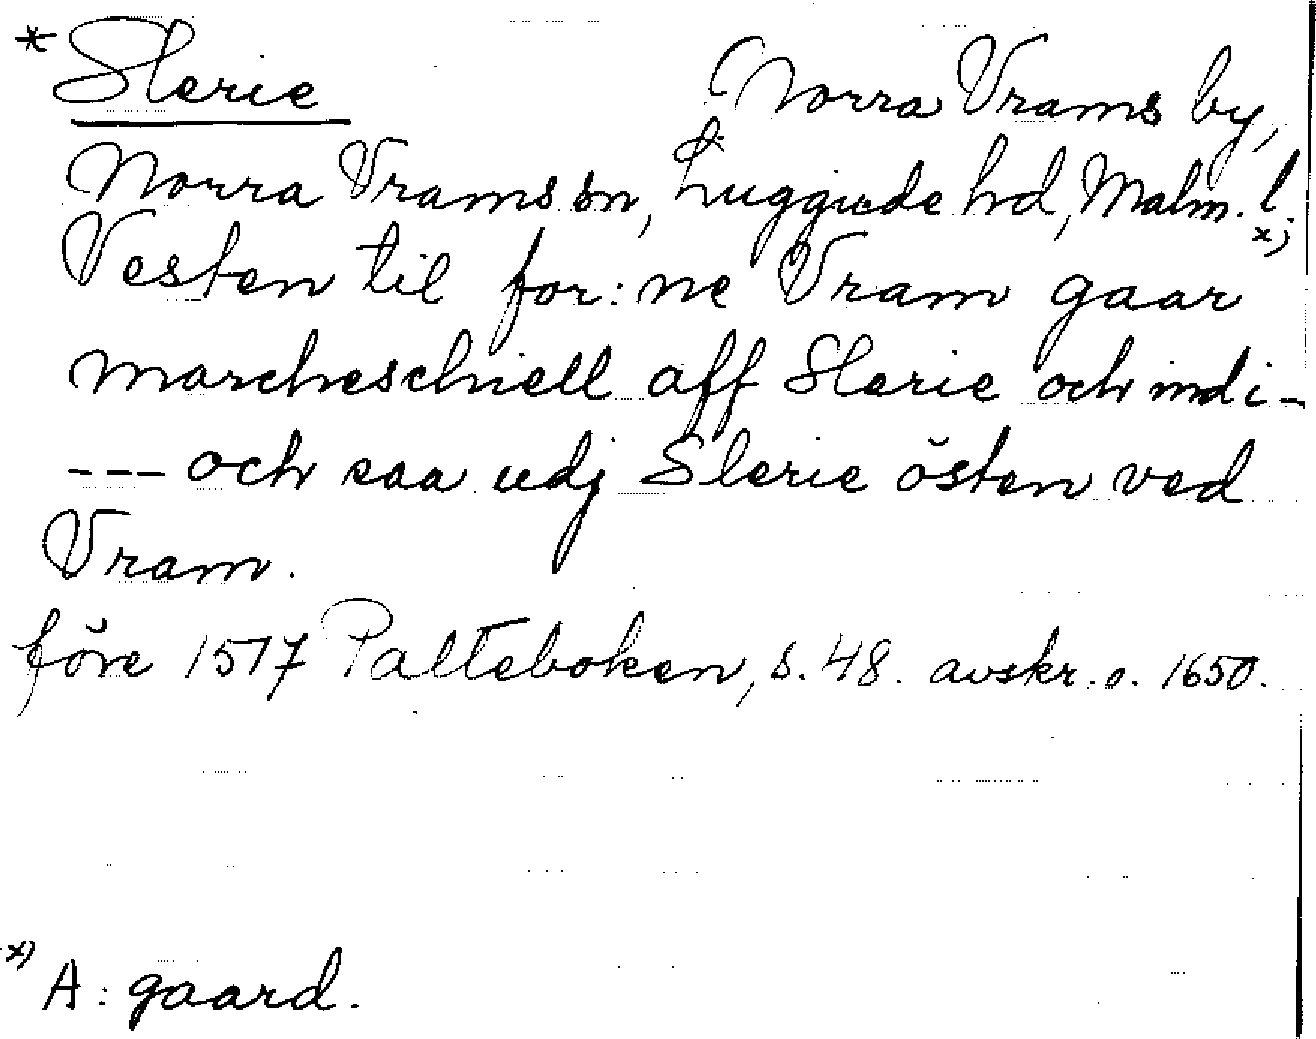 * Slerie Norra Vrams by,
Norra Vrams sn, Luggude hd, Malm. l.
x)
Vesten til for:ne Vram gaar
marcheschiell aff Slerie och ind i -
--- och saa udj Slerie östen ved
Vram.
före 1517 Palteboken, s. 48. avskr. o. 1650.
x) A: gaard.